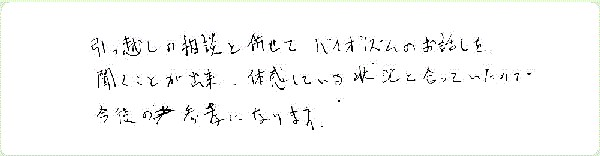 引っ越しの相談と併せてバイオリズムのお話しを、
聞くことが出来、体感している状況と合っていたので
今後の参考になります。